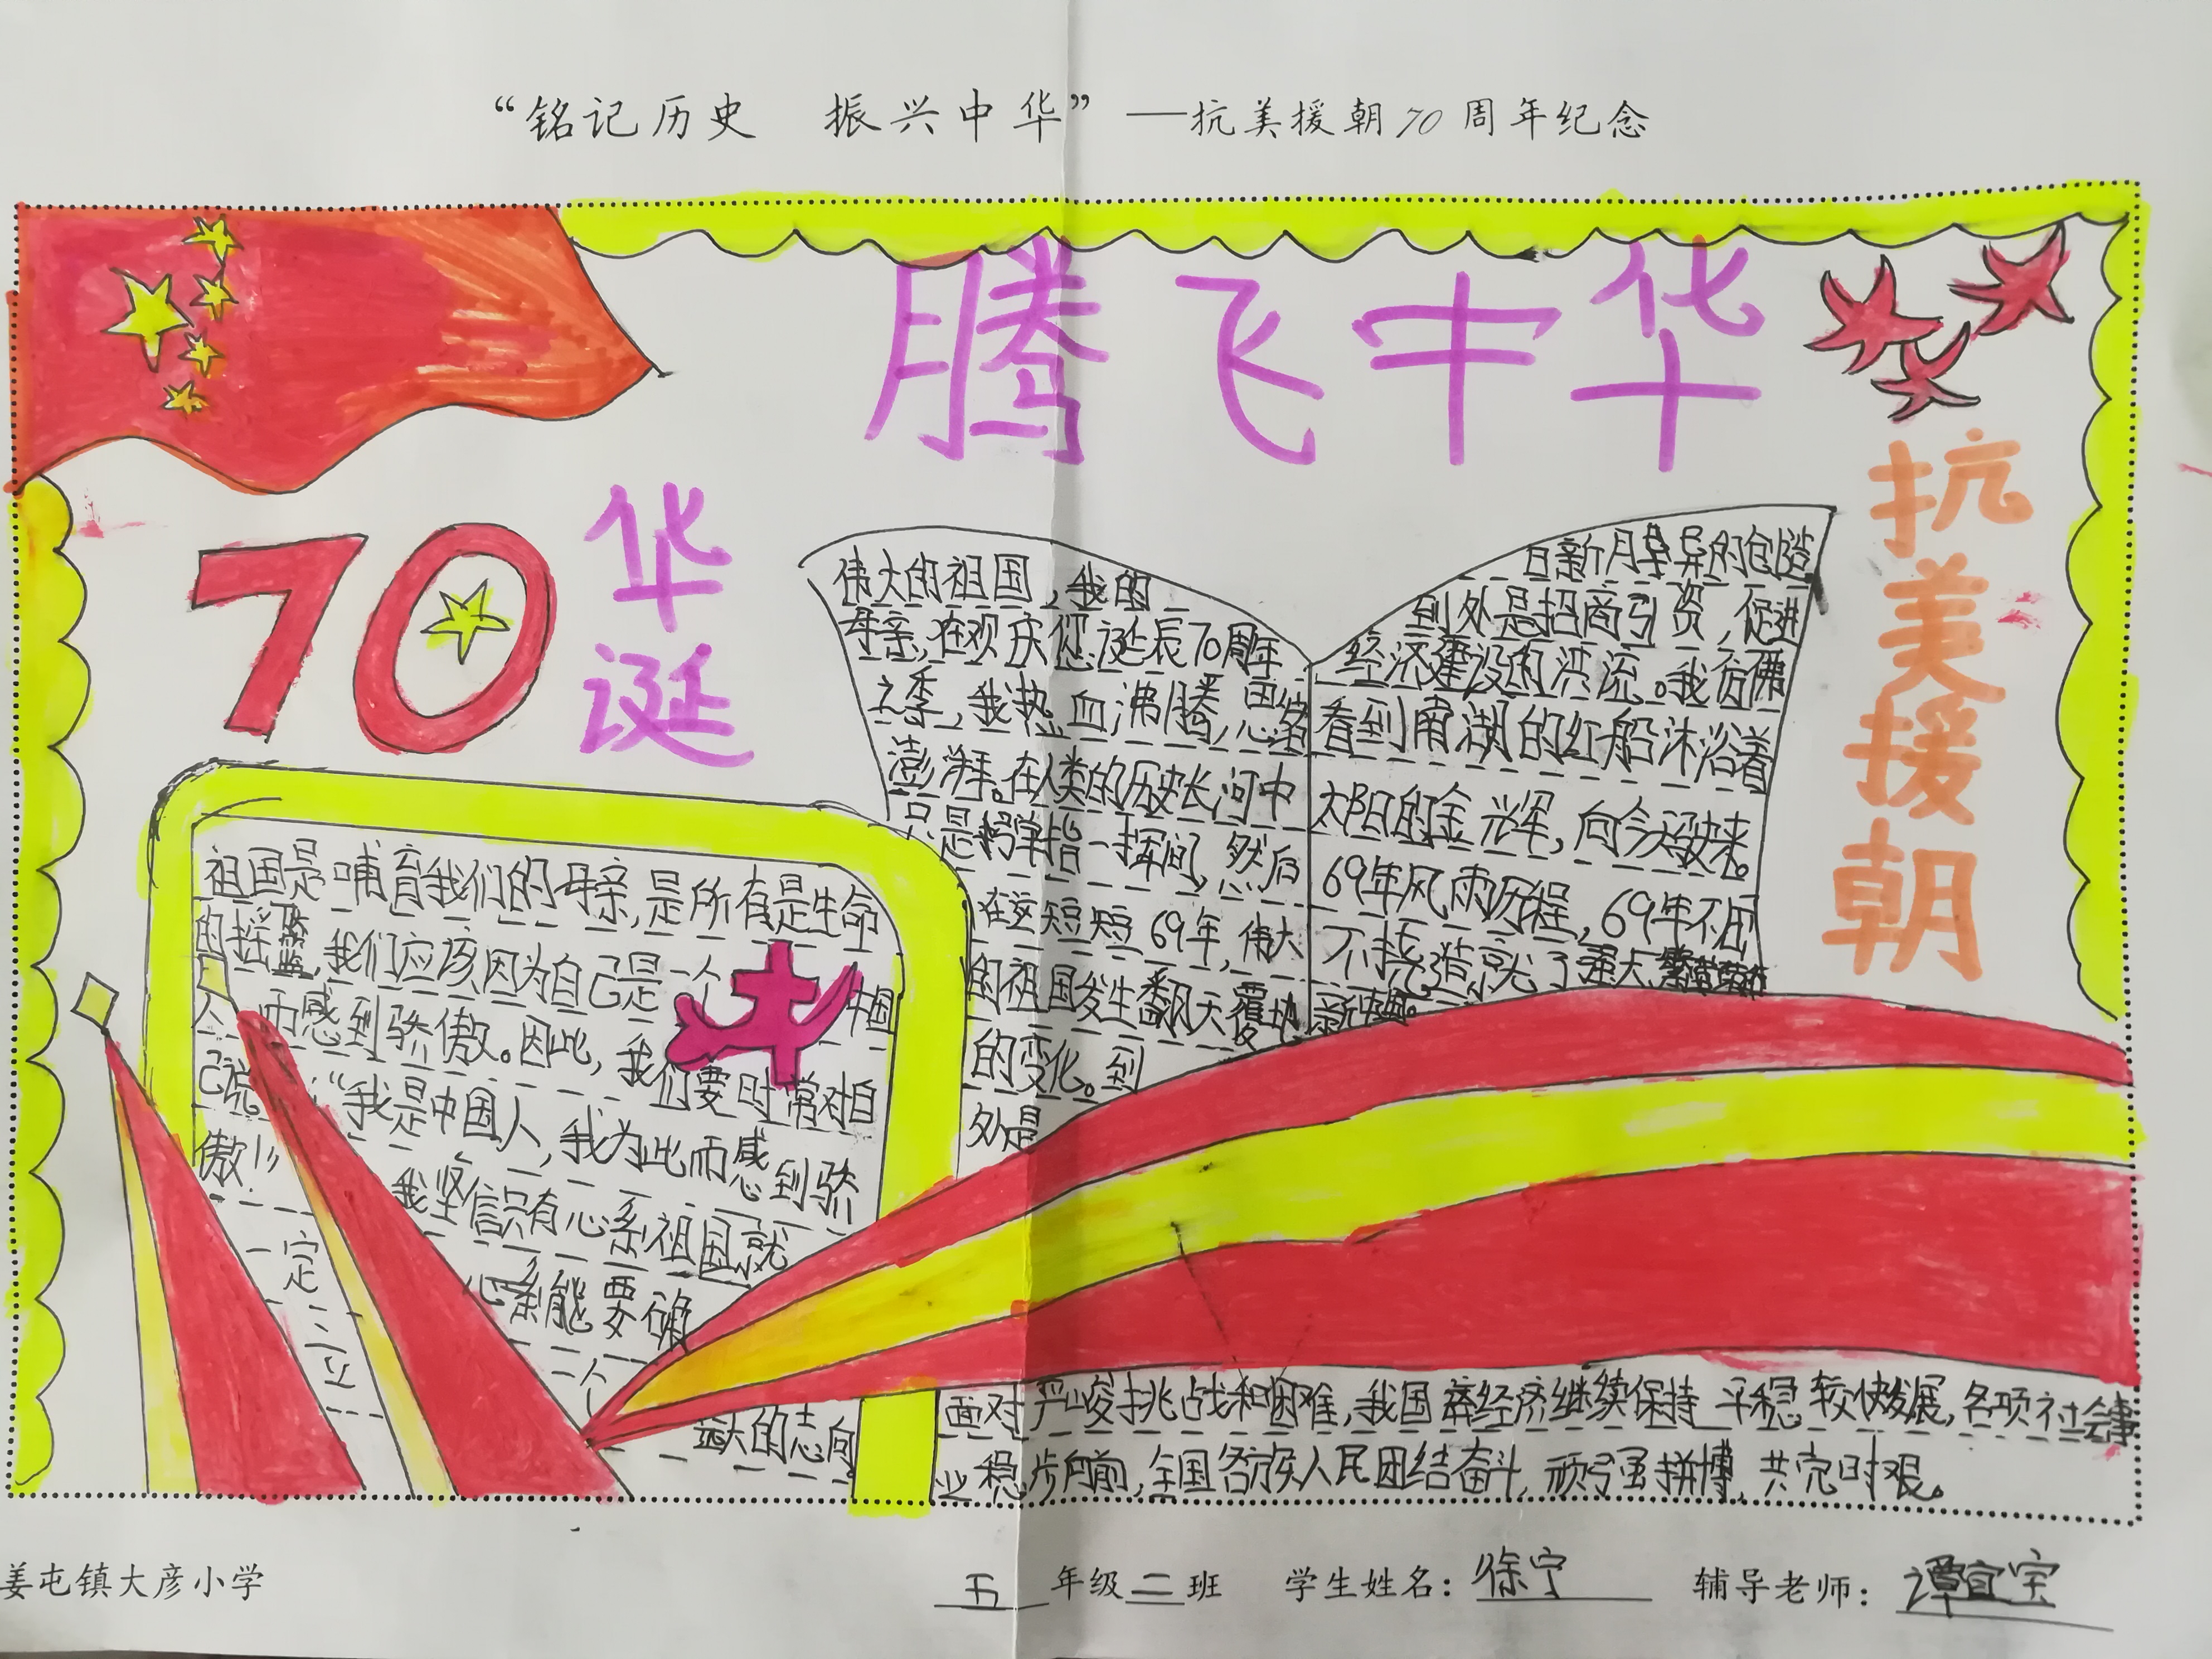 “铭记历史 振兴中华”——抗美援朝70周年纪念
腾飞中华
抗美援朝
70
华诞
伟大的祖国,我的
母亲,在欢庆您诞辰70周年
之季,我热血沸腾,思绪
澎湃。在人类的历史长河中
只是弹指一挥间,然后
在这短短69年,伟大
的祖国发生翻天覆地
的变化。到
处是
日新月异的创造
到处是招商引资,促进
经济建设的洪流。我仿佛
看到南湖的红船沐浴着
太阳的金辉,向今驶来。
69年风雨历程,69年不屈
不挠造就了强大
祖国是哺育我们的母亲,是所有是生命
的摇篮,我们应该因为自己是一个中国
人而感到骄傲。因此,我们要时常对自
己说:“我是中国人,我为此而感到骄
傲!”
我坚信只有心系祖国就
一定心系能要确
立一个
远大的志向
面对严峻挑战和困难,我国经济继续保持平稳较快发展,各项社会事
业稳步向前,全国各族人民团结奋斗,顽强拼搏,共克时艰。
姜屯镇大彦小学 五年级二班 学生姓名：徐宁 辅导老师：谭宜宝